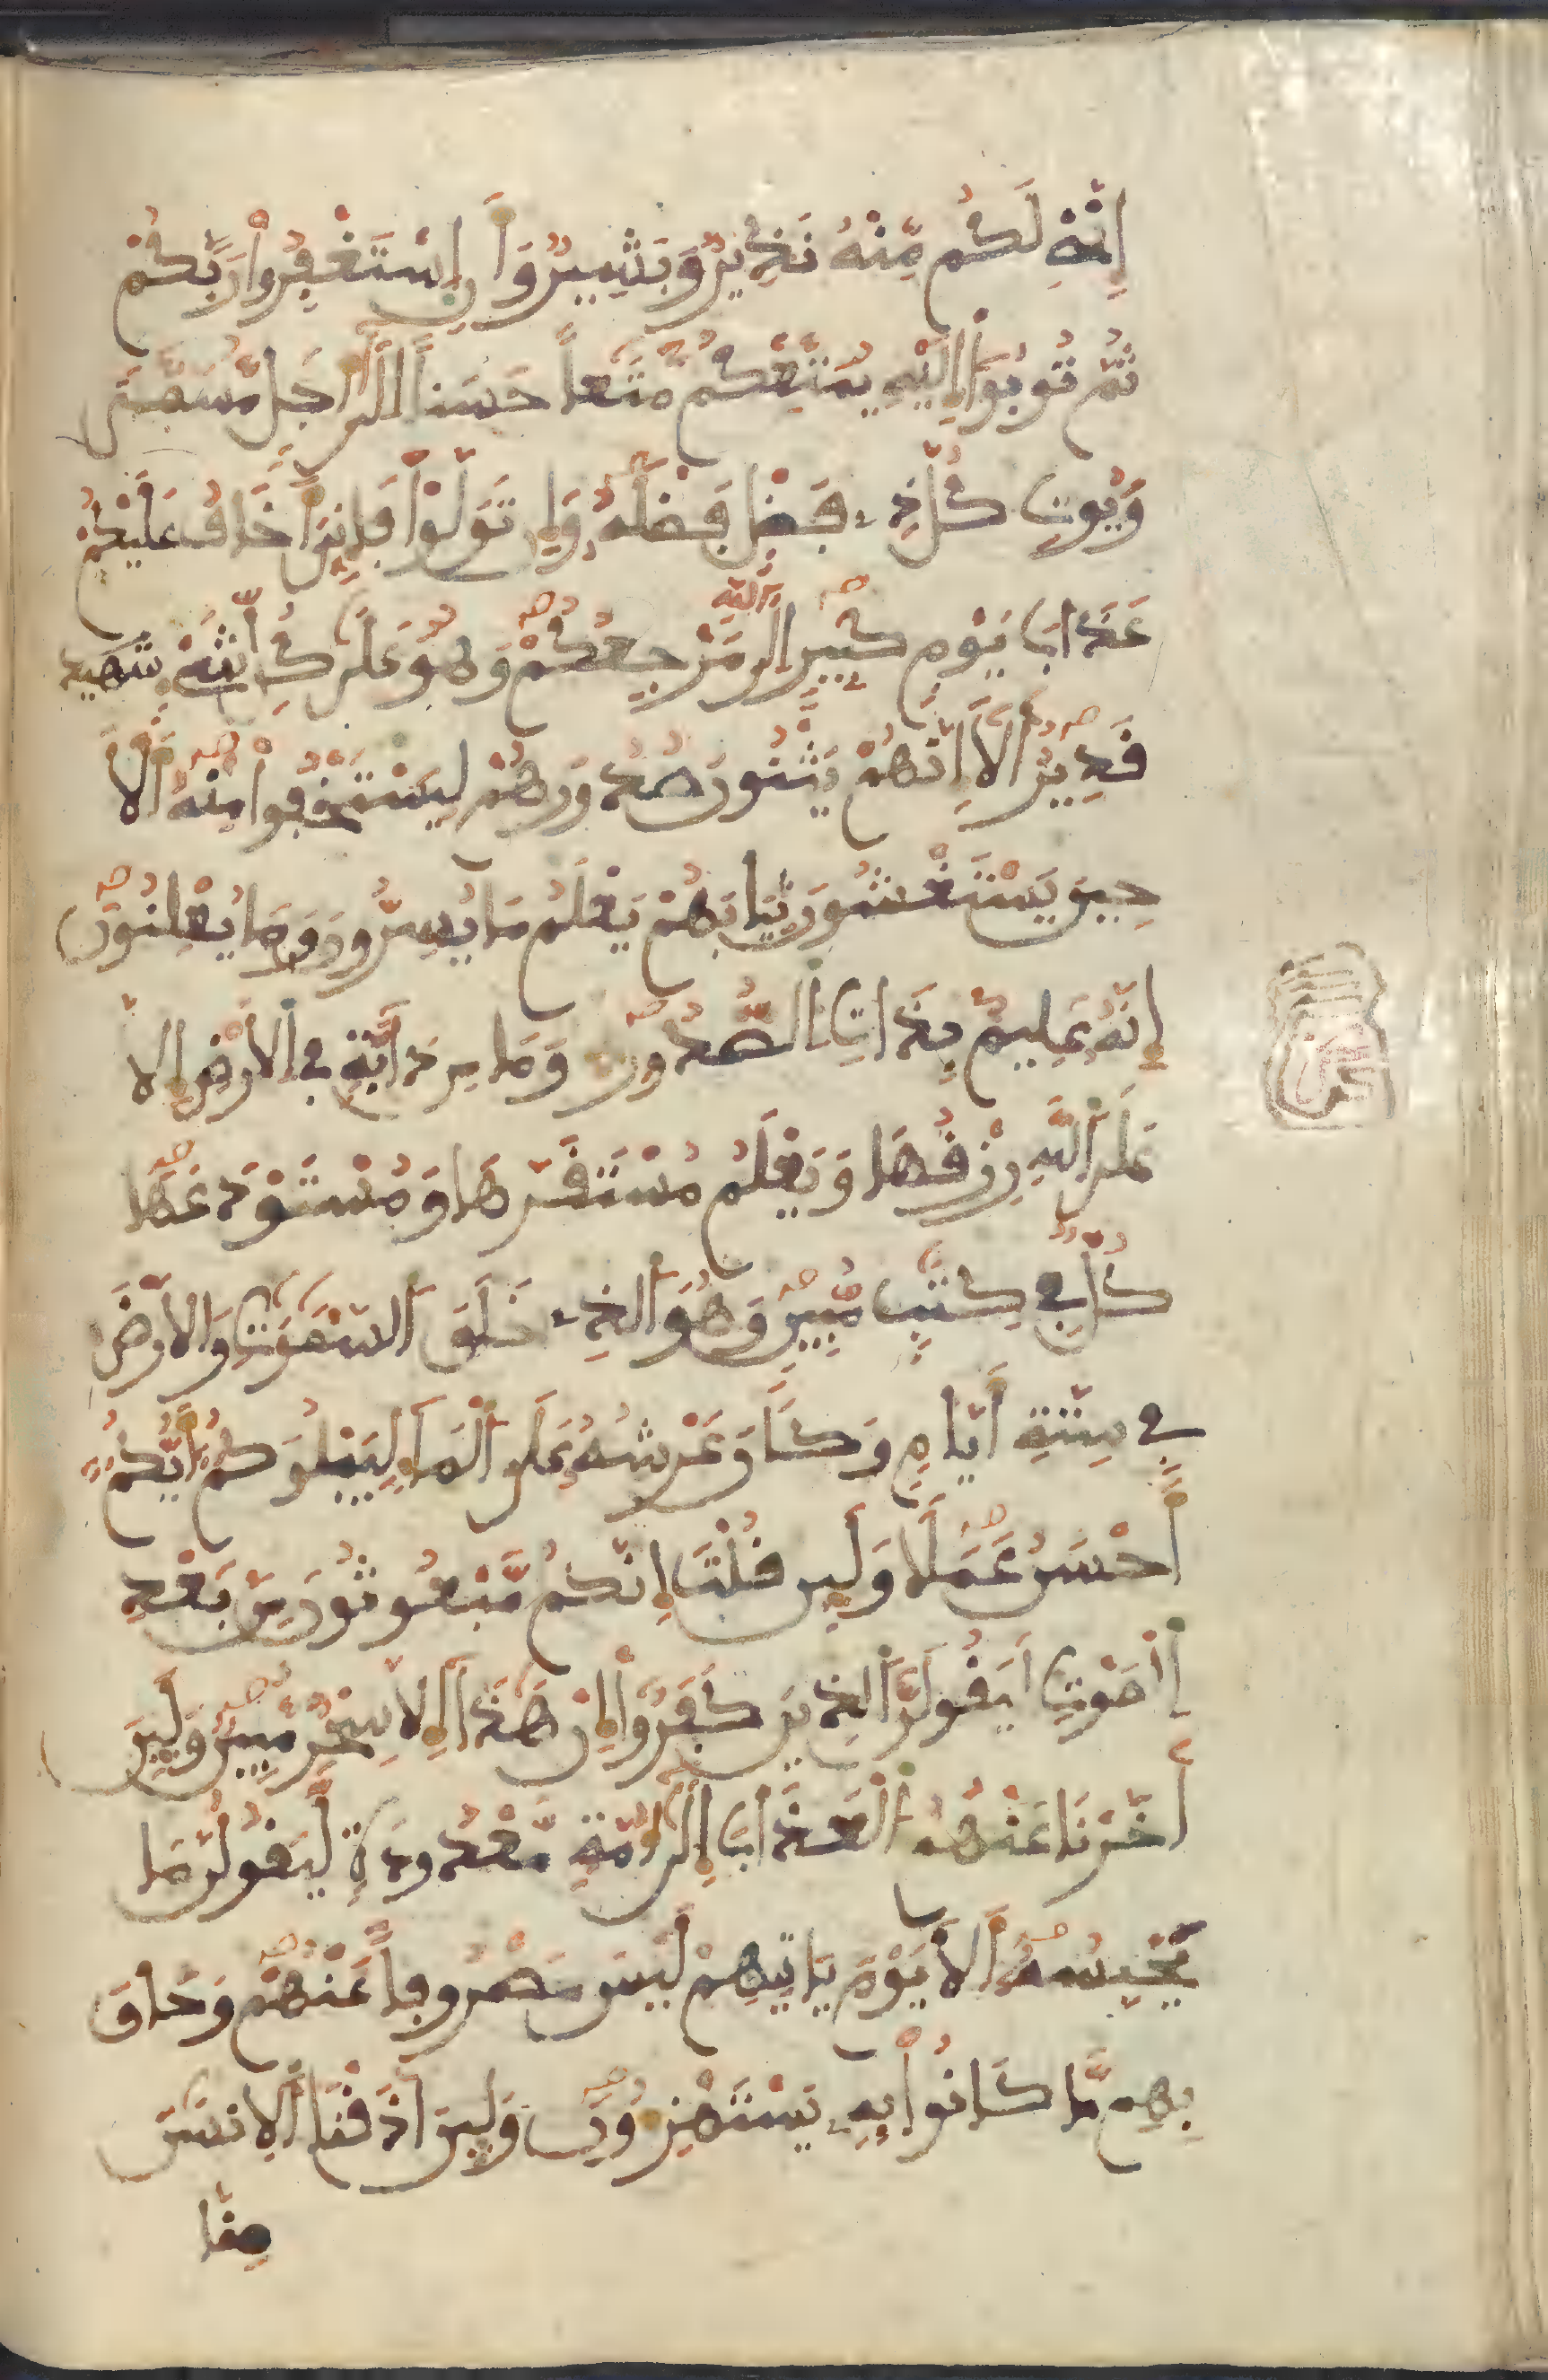 إِنَّنِے لَكُم مِّنْهُ نَذِيرٌ وَبَشِيرٌ وَأَنِ اِسْتَغْفِرُواْ رَبَّكُمْ
ثُمَّ تُوبُوٓاْ إِلَيْهِ يُمَتِّعْكُم مَّتَٰعاً حَسَناً إِلَىٰٓ أَجَلٖ مُّسَمّىٗ
وَيُوتِ كُلَّ ذِے فَضْلٖ فَضْلَهُۥ وَإِن تَوَلَّوْاْ فَإِنِّيَ أَخَافُ عَلَيْكُمْ
عَذَابَ يَوْمٖ كَبِيرٍ إِلَى اَللَّهِ مَرْجِعُكُمْ وَهُوَ عَلَىٰ كُلِّ شَےْءٖ
قَدِيرٌ أَلَآ إِنَّهُمْ يَثْنُونَ صُدُورَهُمْ لِيَسْتَخْفُواْ مِنْهُ أَلَا
حِينَ يَسْتَغْشُونَ ثِيَابَهُمْ يَعْلَمُ مَا يُسِرُّونَ وَمَا يُعْلِنُونَ
إِنَّهُۥ عَلِيمٌ بِذَاتِ اِلصُّدُورِ وَمَا مِن دَآبَّةٖ فِے اِلَارْضِ إِلَّا
عَلَى اَللَّهِ رِزْقُهَا وَيَعْلَمُ مُسْتَقَرَّهَا وَمُسْتَوْدَعَهَا
كُلّٞ فِے كِتَٰبٖ مُّبِينٖ وَهُوَ اَلذِے خَلَقَ اَلسَّمَٰوَٰتِ وَالَارْضَ
فِے سِتَّةِ أَيَّامٖ وَكَانَ عَرْشُهُۥ عَلَى اَلْمَآءِ لِيَبْلُوَكُمُۥٓ أَيُّكُمُۥٓ
أَحْسَنُ عَمَلًا وَلَئِن قُلْتَ إِنَّكُم مَّبْعُوثُونَ مِنۢ بَعْدِ
اِلْمَوْتِ لَيَقُولَنَّ اَلذِينَ كَفَرُوٓاْ إِنْ هَٰذَآ إِلَّا سِحْرٞ مُّبِينٞ وَلَئِنَ
اَخَّرْنَا عَنْهُمُ اُلْعَذَابَ إِلَىٰٓ أُمَّةٖ مَّعْدُودَةٖ لَّيَقُولُنَّ مَا
يَحْبِسُهُۥٓ أَلَا يَوْمَ يَاتِيهِمْ لَيْسَ مَصْرُوفاً عَنْهُمْ وَحَاقَ
بِهِم مَّا كَانُواْ بِهِۦ يَسْتَهْزِءُونَ وَلَئِنَ اَذَقْنَا اَلِانسَٰنَ
مِنَّا